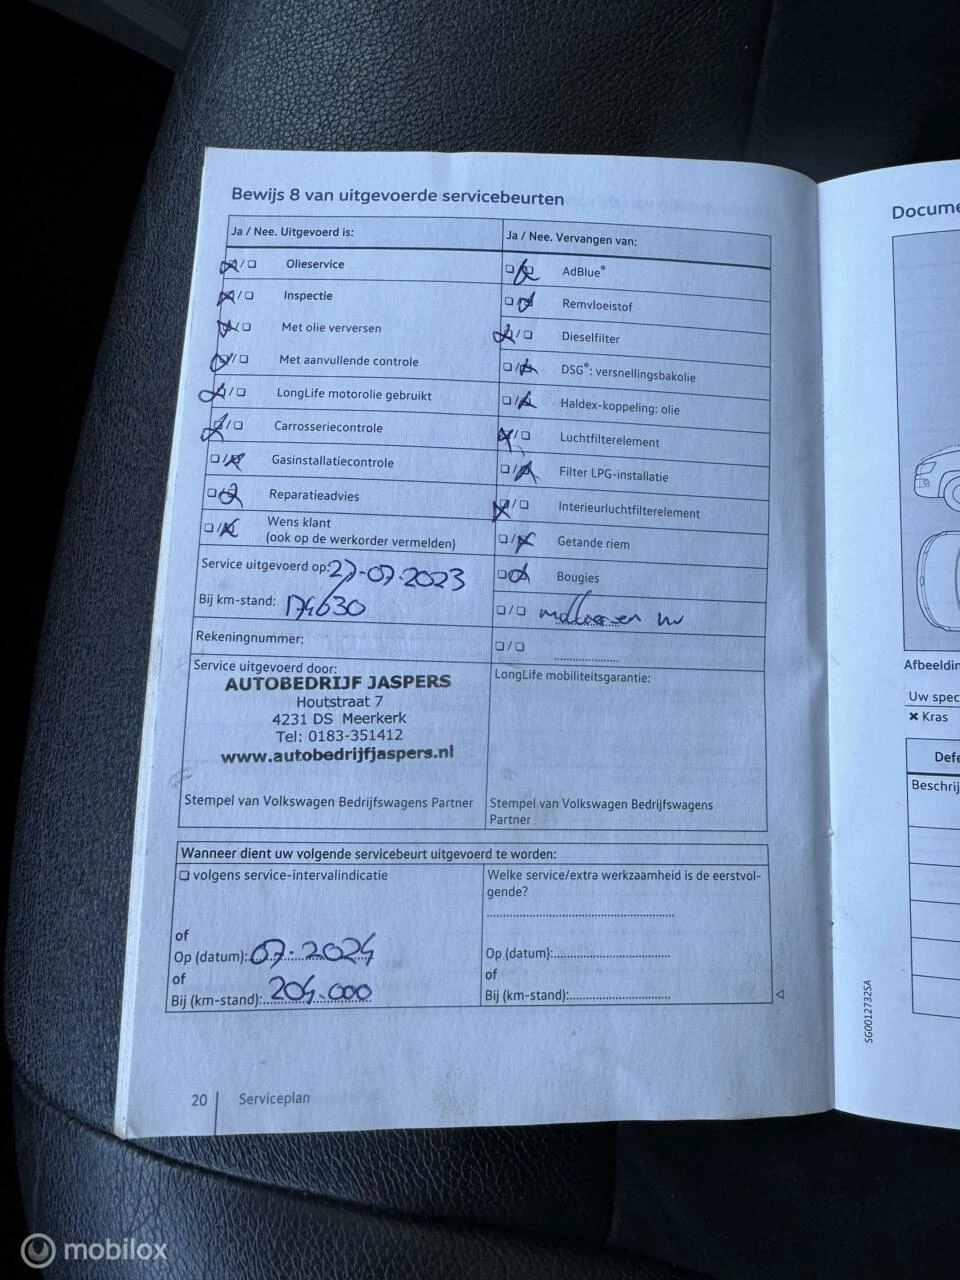 Bewijs 8 van uitgevoerde servicebeurten
Ja / Nee. Uitgevoerd is:
Olieservice
Inspectie
Met olie verversen
Met aanvullende controle
LongLife motorolie gebruikt
Carrosseriecontrole
Gasinstallatiecontrole
Reparatieadvies
Wens klant
(ook op de werkorder vermelden)
Service uitgevoerd op: 27-07-2023
Bij km-stand: 174630
Rekeningnummer:
Service uitgevoerd door:
AUTOBEDRIJF JASPERS
Houtstraat 7
4231 DS Meerkerk
Tel: 0183-351412
www.autobedrijfjaspers.nl
Stempel van Volkswagen Bedrijfswagens Partner
Ja / Nee. Vervangen van:
AdBlue®
Remvloeistof
Dieselfilter
DSG®: versnellingsbakolie
Haldex-koppeling: olie
Luchtfilterelement
Filter LPG-installatie
Interieurluchtfilterelement
Getande riem
Bougies
LongLife mobiliteitsgarantie:
Stempel van Volkswagen Bedrijfswagens
Partner
Wanneer dient uw volgende servicebeurt uitgevoerd te worden:
volgens service-intervalindicatie
of
Op (datum): 07-2024
of
Bij (km-stand): 204.000
Welke service/extra werkzaamheid is de eerstvol-
gende?
Op (datum):
of
Bij (km-stand):
20 Serviceplan
SG0012732SA
Docume
Afbeeldin
Uw spec
Kras
Defe
Beschrij
mobilox